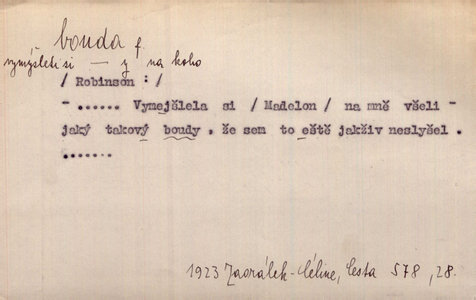 bouda f.
vymýšleti si — y na koho
/ Robinson : /
- ...... Vymejšlela si / Madelon / na mně všeli -
jaký takový boudy , že sem to eště jakživ neslyšel .
.......
1923 Zaorálek-Céline, Cesta 578, 28.